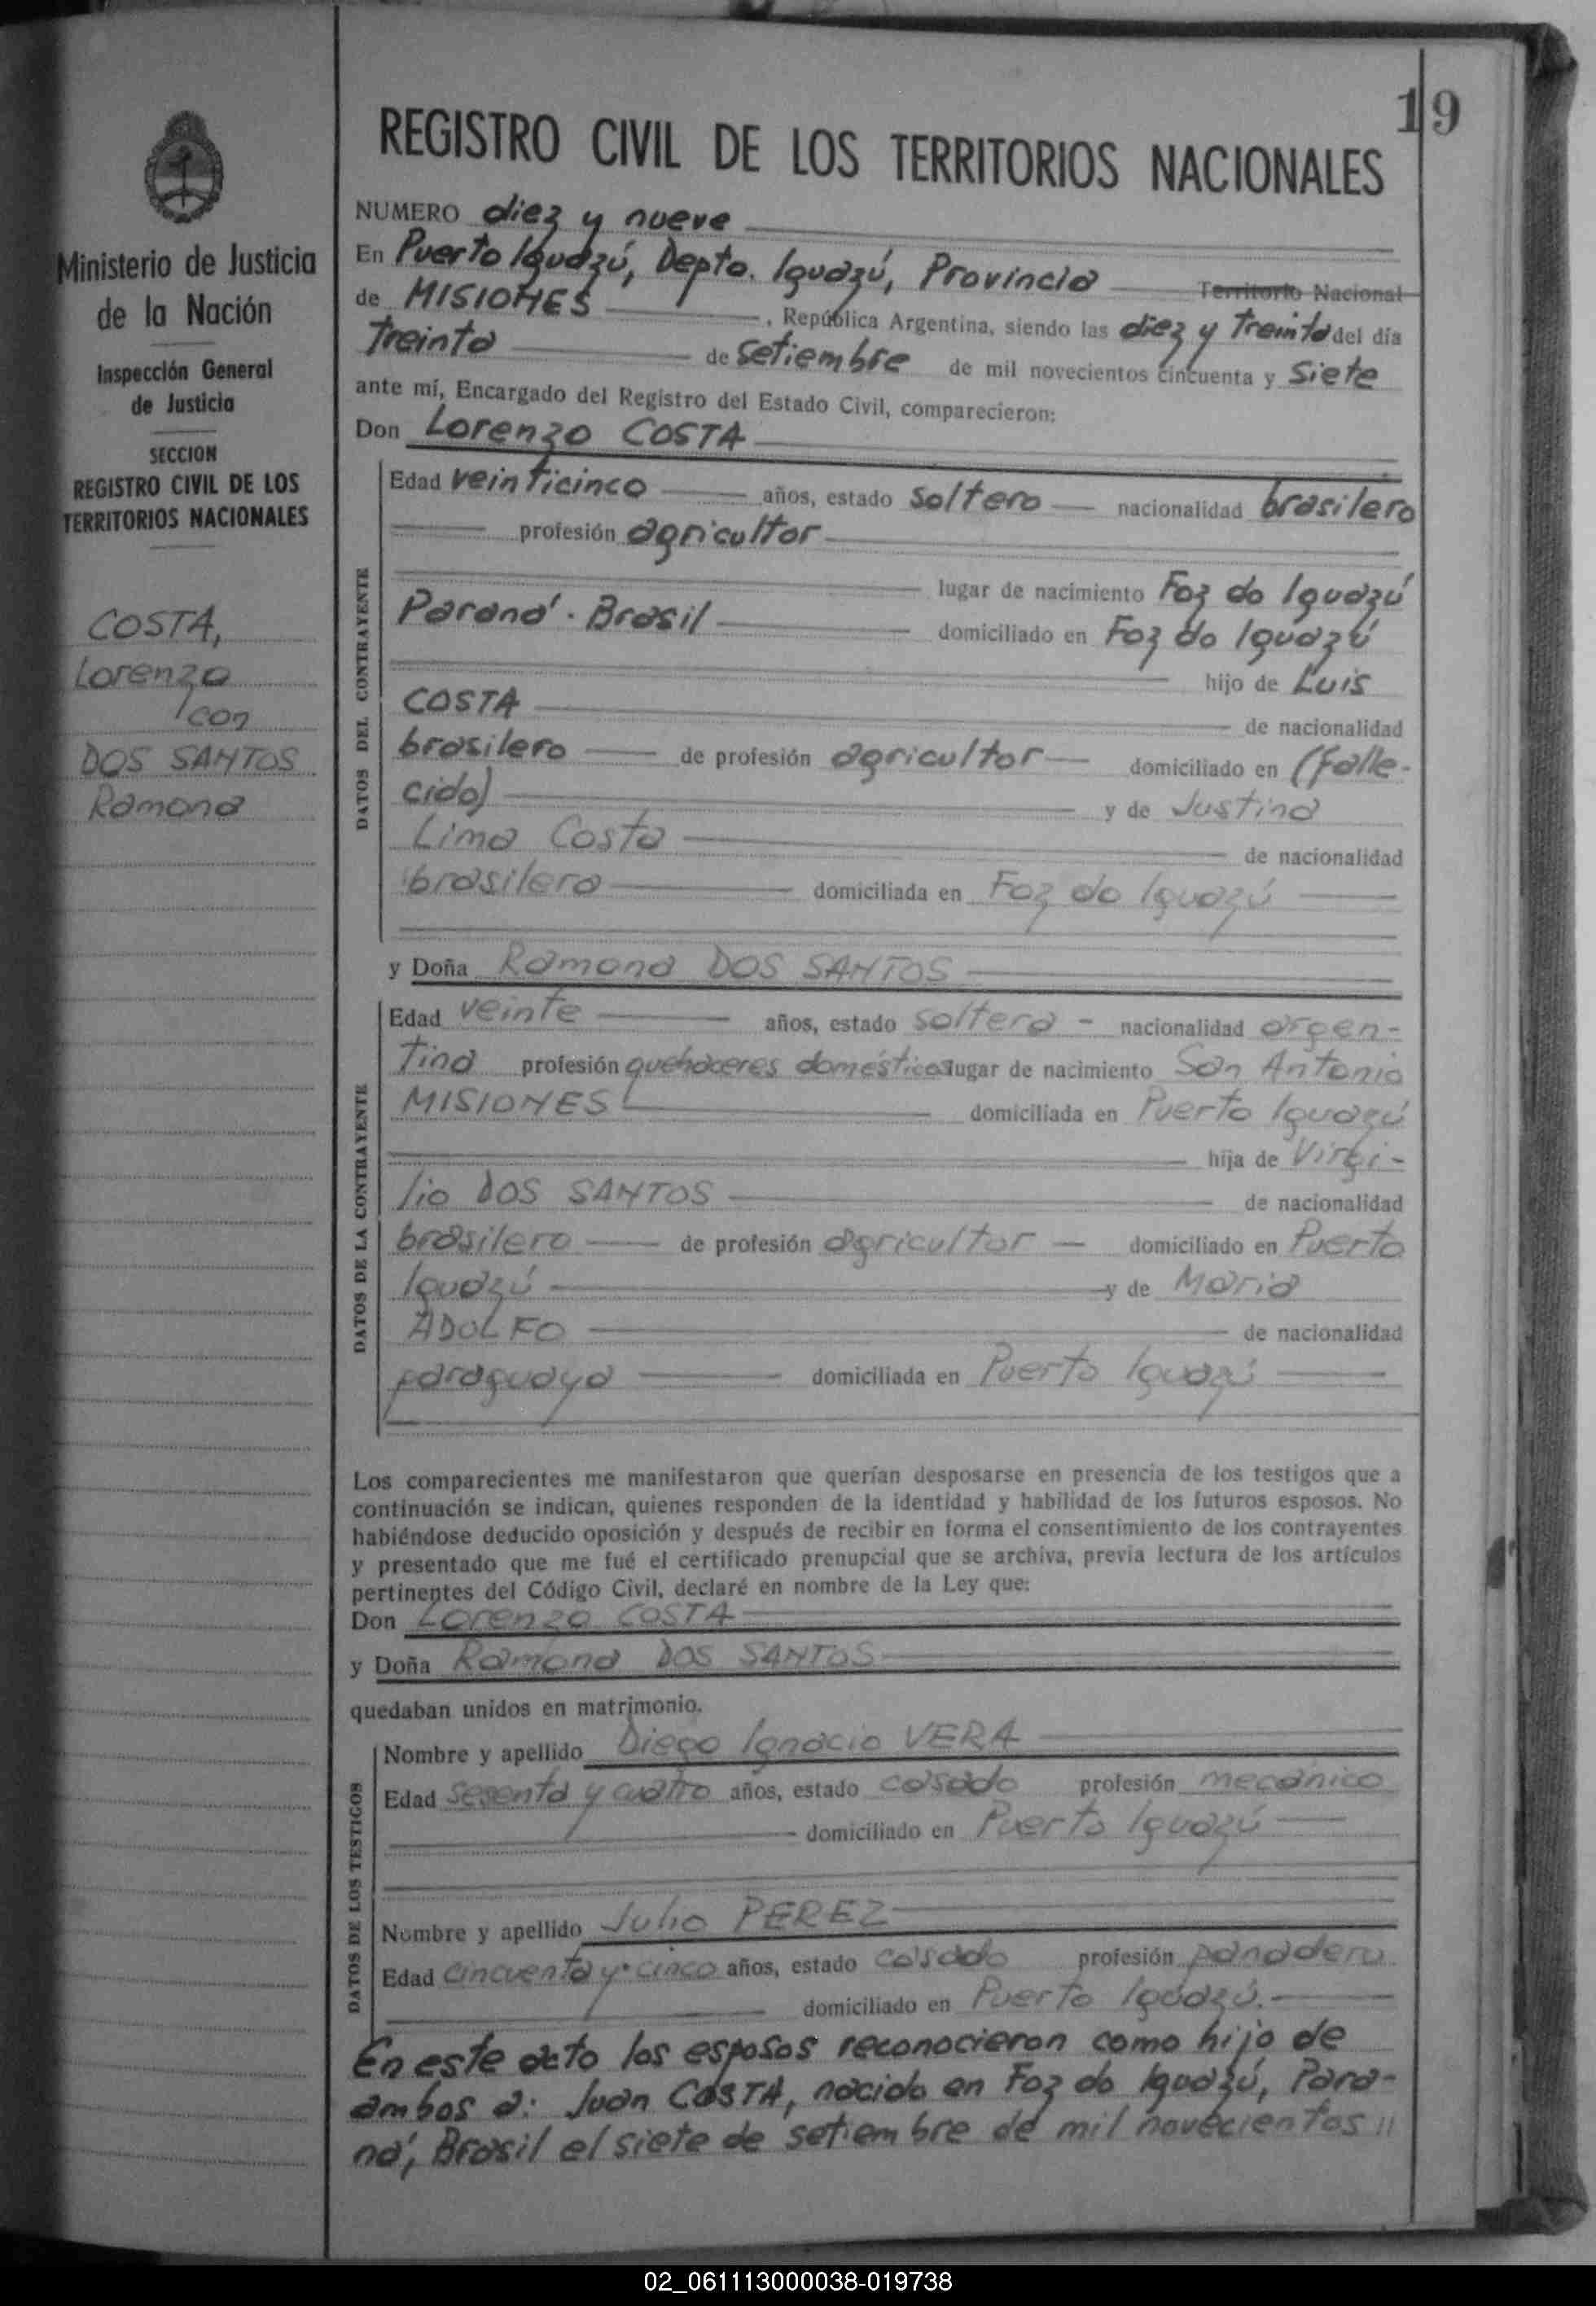 19
REGISTRO CIVIL DE LOS TERRITORIOS NACIONALES
Ministerio de Justicia
de la Nación
Inspección General
de Justicia
SECCION
REGISTRO CIVIL DE LOS
TERRITORIOS NACIONALES
COSTA,
Lorenzo
con
DOS SANTOS
Ramona
NUMERO diez y nueve
En Puerto Iguazú, Depto. Iguazú, Provincia Territorio Nacional
de MISIONES, República Argentina, siendo las diez y treinta del día
treinta de setiembre de mil novecientos cincuenta y siete
ante mí, Encargado del Registro del Estado Civil, comparecieron:
Don Lorenzo COSTA
DATOS DEL CONTRAYENTE
Edad veinticinco años, estado soltero nacionalidad brasilero
profesión agricultor
lugar de nacimiento Foz do Iguazú
Paraná. Brasil domiciliado en Foz do Iguazú
hijo de Luis
COSTA de nacionalidad
brasilero de profesión agricultor domiciliado en (falle-
cido) y de Justina
Lima Costa de nacionalidad
brasilera domiciliada en Foz do Iguazú
y Doña Ramona DOS SANTOS
DATOS DE LA CONTRAYENTE
Edad veinte años, estado soltera - nacionalidad argen-
tina profesión quehaceres domésticos lugar de nacimiento San Antonio
MISIONES domiciliada en Puerto Iguazú
hija de Virgi-
lio DOS SANTOS de nacionalidad
brasilero de profesión agricultor domiciliado en Puerto
Iguazú y de Maria
ADOLFO de nacionalidad
paraguaya domiciliada en Puerto Iguazú
Los comparecientes me manifestaron que querían desposarse en presencia de los testigos que a
continuación se indican, quienes responden de la identidad y habilidad de los futuros esposos. No
habiéndose deducido oposición y después de recibir en forma el consentimiento de los contrayentes
y presentado que me fué el certificado prenupcial que se archiva, previa lectura de los artículos
pertinentes del Código Civil, declaré en nombre de la Ley que:
Don Lorenzo COSTA
y Doña Ramona DOS SANTOS
quedaban unidos en matrimonio.
DATOS DE LOS TESTIGOS
Nombre y apellido Diego Ignacio VERA
Edad sesenta y cuatro años, estado casado profesión mecánico
domiciliado en Puerto Iguazú
Nombre y apellido Julio PEREZ
Edad cincuenta y cinco años, estado casado profesión panadero
domiciliado en Puerto Iguazú.
En este acto los esposos reconocieron como hijo de
ambos a: Juan COSTA, nacido en Foz do Iguazú, Para-
ná, Brasil el siete de setiembre de mil novecientos //
02_061113000038-019738